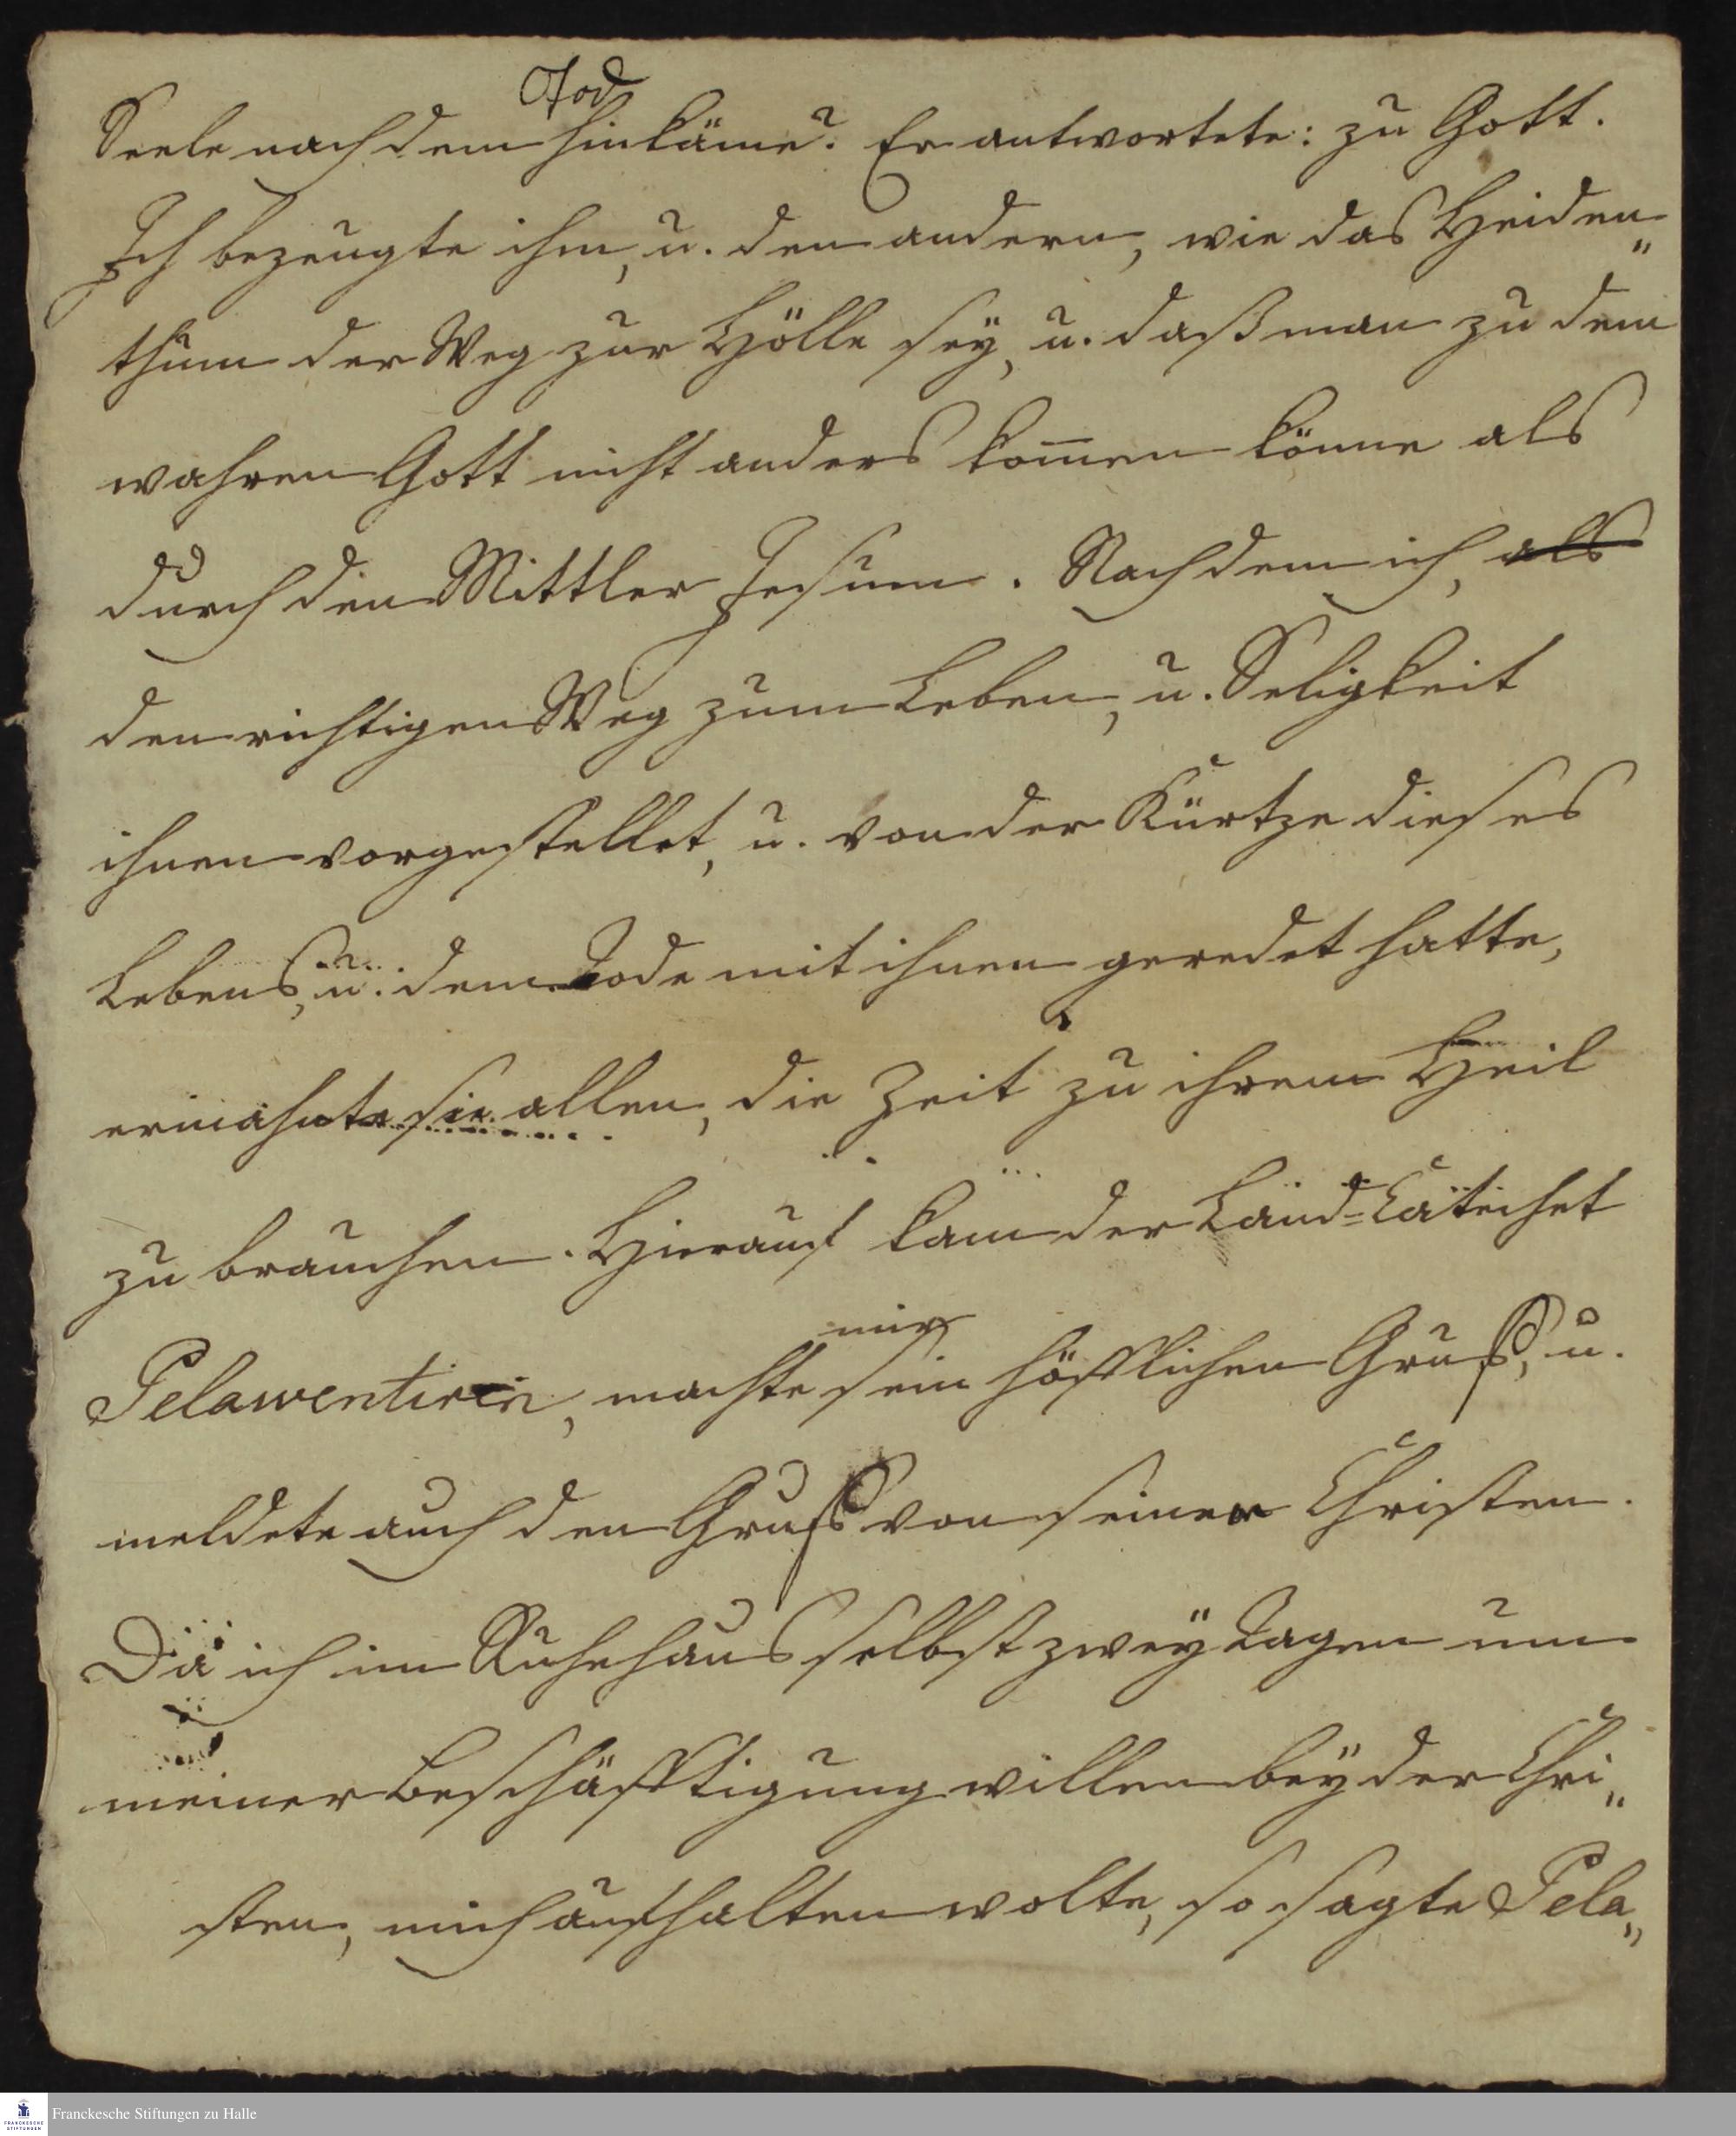 Tod
Seele nach dem hinkäme? Er antwortete: zu Gott.
Ich bezeugte ihm, u. den andern, wie das Heiden„
thum der Weg zur Hölle seÿ, u. daß man zu dem
wahren Gott nicht anders kom̅en könne als
durch den Mittler Jesum. Nachdem ich, als
den richtigen Weg zum Leben, u. Seligkeit
ihnen vorgestellet, u. von der Kürtze dieses
Lebens, u. dem Tode mit ihnen geredet hatte,
ermahnte sie allen, die Zeit zu ihrem Heil
zu brauchen. Hierauf kam der Land-Catechet
mir
Pelawentiren, machte sein höfflichen Gruß, u.
meldete auch den Gruß von seinen Christen.
Da ich im Ruhehaus selbst zweÿ Tagen um
meiner Beschäfftigung willen beÿ der Chri„
sten, mich aufhalten wolte, so sagte Pela„
Franckesche Stiftungen zu Halle
FRANCKESCHE
STIFTUNGEN